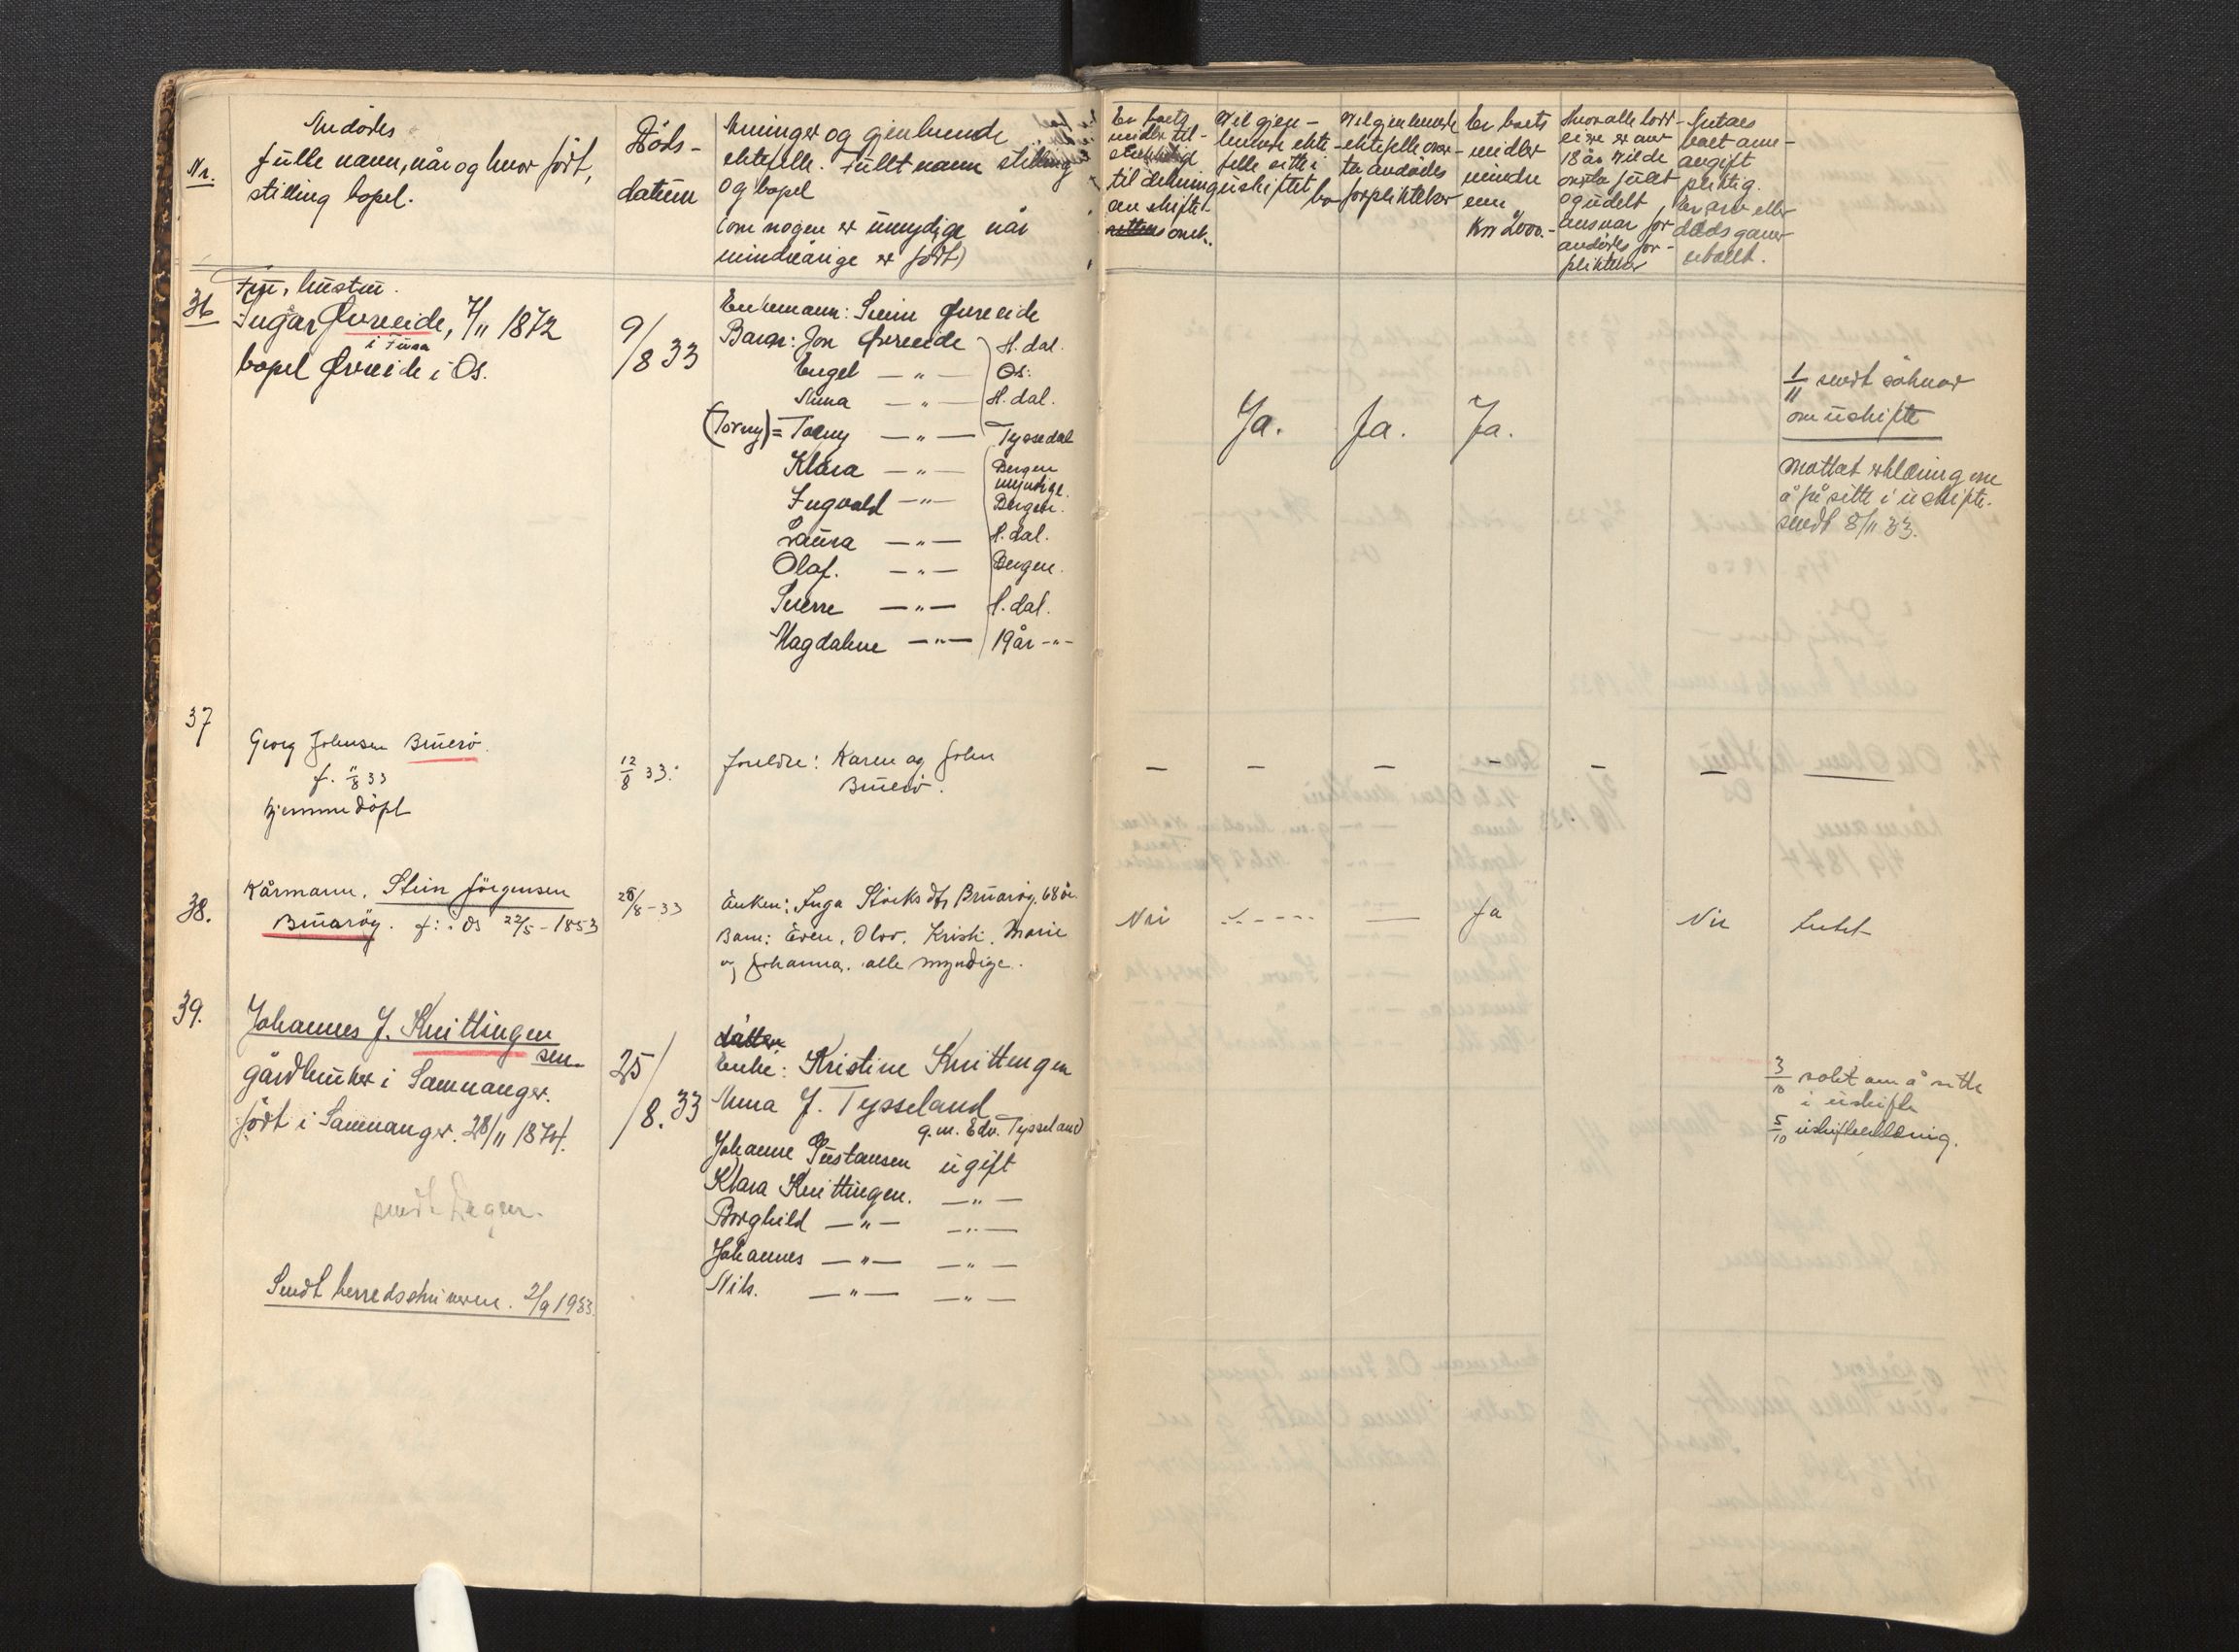 Nr.
Avdødes
fulle navn, når og hvor født,
stilling bopel.
Døds-
datum
Arvinger og gjenlevende
ektefelle. Fullt navn stilling
og bopel
(om nogen er umyndige når
mindreårige er født)
Er boets
midler til-
strekkelig
til dekning
av skifte-
omk.
Vil gjen-
levende ekte-
felle sitte i
uskiftet bo
Vil gjenlevende
ektefelle over-
ta avdødes
forpliktelser
Er boets
midler
mindre
enn
Kr 2000.-
Hvor alle lodd-
eiere er over
18 år vil de
overta fullt
og udelt
ansvar for
avdødes for-
pliktelser
Antaes
boet avgift
pliktig.
Er arv eller
dødsgaver
utbetalt.
36
Fru, hustru.
Inga Øvreeide, 7/11 1872
i Fusa
bopel Øvreide i Os.
9/8 33
Enkemann: Svein Øvreeide
Barn: Jon Øvreeide H.dal.
Engel —"— Os.
Anna —"— H.dal.
(Torny) = Torny —"— Tyssedal
Klara —"— Bergen
myndige.
Ingvald —"— Bergen.
Laura —"— H.dal.
Olaf. —"— Bergen.
Sverre —"— H.dal.
Magdalene —"— 19 år —"—
Ja. Ja. Ja.
1/11 sendt søknad
om uskifte
Mottat erklæring om
å få sitte i uskifte.
sendt 8/11 33.
37
Georg Johnsen Bruerö.
f. 11/8 33
hjemmedöpt
12/8 33.
Foreldre: Karen og John
Bruerö.
– – – – – – —
38.
Kårmann. Stein Jörgensen
Bruaröy. f: i Os 22/5 - 1853
28/8 - 33
Enken: Inga Störksdtr Bruaröy, 68 år.
Barn: Even, Olav. Kristi. Marie
og Johanna. alle myndige.
Nei — Ja Nei
39.
Johannes J. Kvittingen
sen.
gårdbruker i Samnanger.
født i Samnanger. 28/11 1874.
sendt Legen.
Sendt herredsskriveren. 2/9 1933.
25/8. 33
datter
Enke: Kristine Kvittingen
Anna J. Tysseland
g.m. Edv. Tysseland
Johanne Gustavsen ugift
Klara Kvittingen. —"—
Borghild —"— —"—
Johannes —"— —"—
Nils. —"— —"—
3/10 søkt om å sitte
i uskifte
5/10 uskifteerklæring.